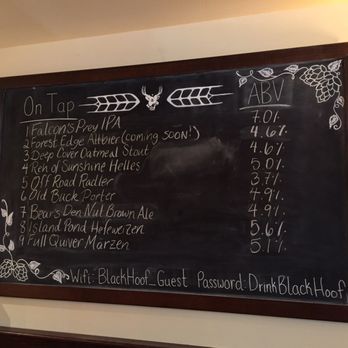 On Tap ABV
1 Falcon's Prey IPA 7.0%
2 Forest Edge Altbier (coming soon!) 4.6%
3 Deep Cover Oatmeal Stout 4.6%
4 Ray of Sunshine Helles 5.0%
5 Off Road Radler 3.7%
6 Old Buck Porter 4.9%
7 Bear's Den Nut Brown Ale 4.9%
8 Island Pond Hefeweizen 5.6%
9 Full Quiver Märzen 5.1%
Wifi: BlackHoof_Guest Password: DrinkBlackHoof